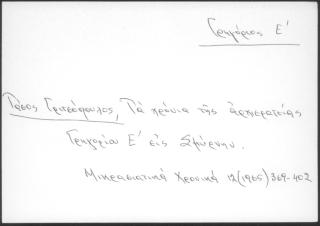 Γρηγόριος Ε'
Τάσος Γριτσόπουλος, Τὰ χρόνια τῆς ἀρχιερατείας
Γρηγορίου Ε' εἰς Σμύρνην.
Μικρασιατικά Χρονικά 12 (1965) 369-402